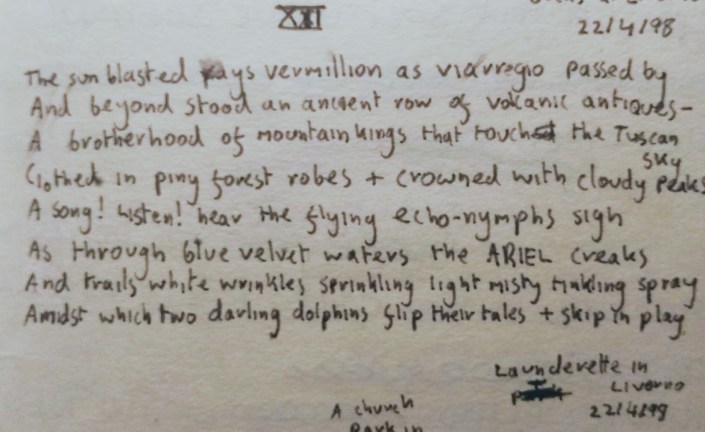 XII
22/4/98
The sun blasted rays vermillion as viarregio passed by
And beyond stood an ancient row of volcanic antiques-
A brotherhood of mountain kings that touched the Tuscan
sky
Clothed in piny forest robes + crowned with cloudy peaks
A song! Listen! hear the flying echo-nymphs sigh
As through blue velvet waters the ARIEL creaks
And trails white wrinkles sprinkling light misty tinkling spray
Amidst which two darling dolphins flip their tales + skip in play
Launderette in
Livorno
22/4/98
A church
Park in